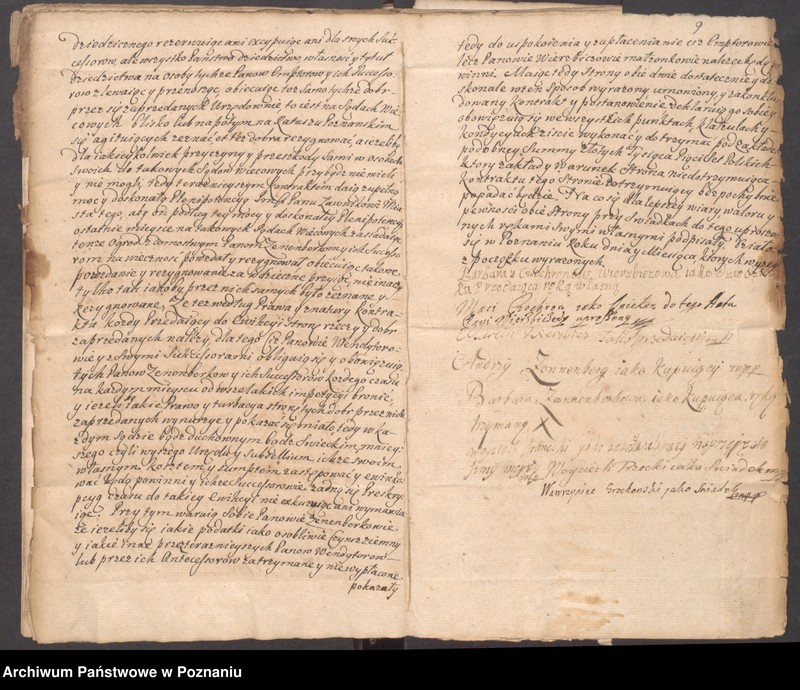 dziedzicznego rezerwuiąc ani excypuiąc ani dla swych Suk-
cessorow, ale wszytko Państwo dziedzictwo własność y tytuł
dziedzictwa na osoby tychże Panow Emptorow y ich Successo-
row zlewaiąc y przenosząc, obiecuiąc toż Samo tychże dobr
przez się zaprzedanych Urzędownie to iest na Sądach Wie-
cowych blisko lub napotym na Ratuszu Poznanskim
się agituiących zeznać et też dobra rezygnować, a ieżeliby
dla iakieykolwiek przyczyny y przeszkody Sami w osobach
Swoich do takowych Sądow wiecowych przybydz nie mieli
y nie mogli, tedy teraznieyszym Kontraktem daią zupełną
moc y doskonałą Plenipotencyą Panu Ławnikowi Mia-
sta tego, aby on podług tey mocy y doskonałey Plenipotencyi
ostatnie mieysce na takowych Sądach Wiecowych zasiadaiący
tenże Ogrod z domostwem Panom Zenonberkom y ich Successo-
rom na wieczność powzdał y rezygnował obiecuiąc takowe
powzdanie y rezygnowanie za wdzięczne przyiąc, nie inaczy
tylko tak iakoby przez nich samych było zeznane y
rezygnowane. Ze też według Prawa y natury Kontra-
ktu każdy Przedaiący do Ewikcyi strony rzeczy y dobr
zaprzedanych należy, dla tego ciż Panowie Wendytoro-
wie y z Swymi Sukcessorami obliguią się y obowięzuią
tychże Panow Zenonberkow y ich Successorow każdego czasu
na każdym mieyscu od wszelakich impetycyi bronic,
y ieżeli iakie Prawo y turbacya strony tych dobr przez nich
zaprzedanych wynurzyc y pokazać się miała tedy w ka-
żdym Sądzie bądz duchownym bądz Swieckim mniey-
szego czyli wyszego Urzędu y Subsellium, ich że swoim
własnym kosztem y sumptem zastępować y ewinko-
wać będą powinni y ich że Successorowie żadną się Preskry-
pcyą czasu do takiey Ewikcyi nie exkuzuiąc ani wymawia-
iąc. Przy tym waruią Sobie Panowie Zenenberkowie
że iezeliby się iakie podatki iako osobliwie Czynsz ziemny
y iakie inne przez teraznieyszych Panow Wendytorow
lub przez ich Antecessorow zatrzymane y niewypłacone
pokazały
9
tedy do uspokoienia y zapłacenia nie ciż Emptorowie
lecz Panowie Wierzbiczowie małżonkowie należec będą po-
winni. Maiąc tedy Strony obie dwie dostatecznie y do-
skonale w ten Sposob wyrażony umowiony y zakonklu-
dowany Kontrakt y postanowienie deklaruią go sobie y
obowięzuią się we wszystkich punktach, Klauzulach y
Kondycyach ziscic wykonać y dotrzymać pod zakładem
podobney Summy złotych Tysiąca Pięciuset Polskich
ktory zakład y warunek Strona niedotrzymuiąca
Kontraktu tego Stronie dotrzymuiącey bez pochybnie
popadać będzie. Na co się dla lepszey wiary waloru y
pewności obie Strony przy Swiadkach do tego uproszo-
nych rękami Swymi własnymi podpisały. Działo
się w Poznaniu Roku dnia y Miesiąca ktorych wyzey
z początku wyrażonych.
Barbara z Grochronow Wierzbizowa iako
Przedaiąca ręką własną
Maci Grochron iako do tego Aktu
uproszony
iako przedaiący mp
Andrzy Zonnenberg iako Kupuiący mpp
Barbara Zonnenberkowa iako Kupuiąca, ręką
trzymaną X
mpp Woyciech Trocki iako Swiadek mpp
Wawrzyniec Grochonski jako Swiadek mpp
Archiwum Państwowe w Poznaniu